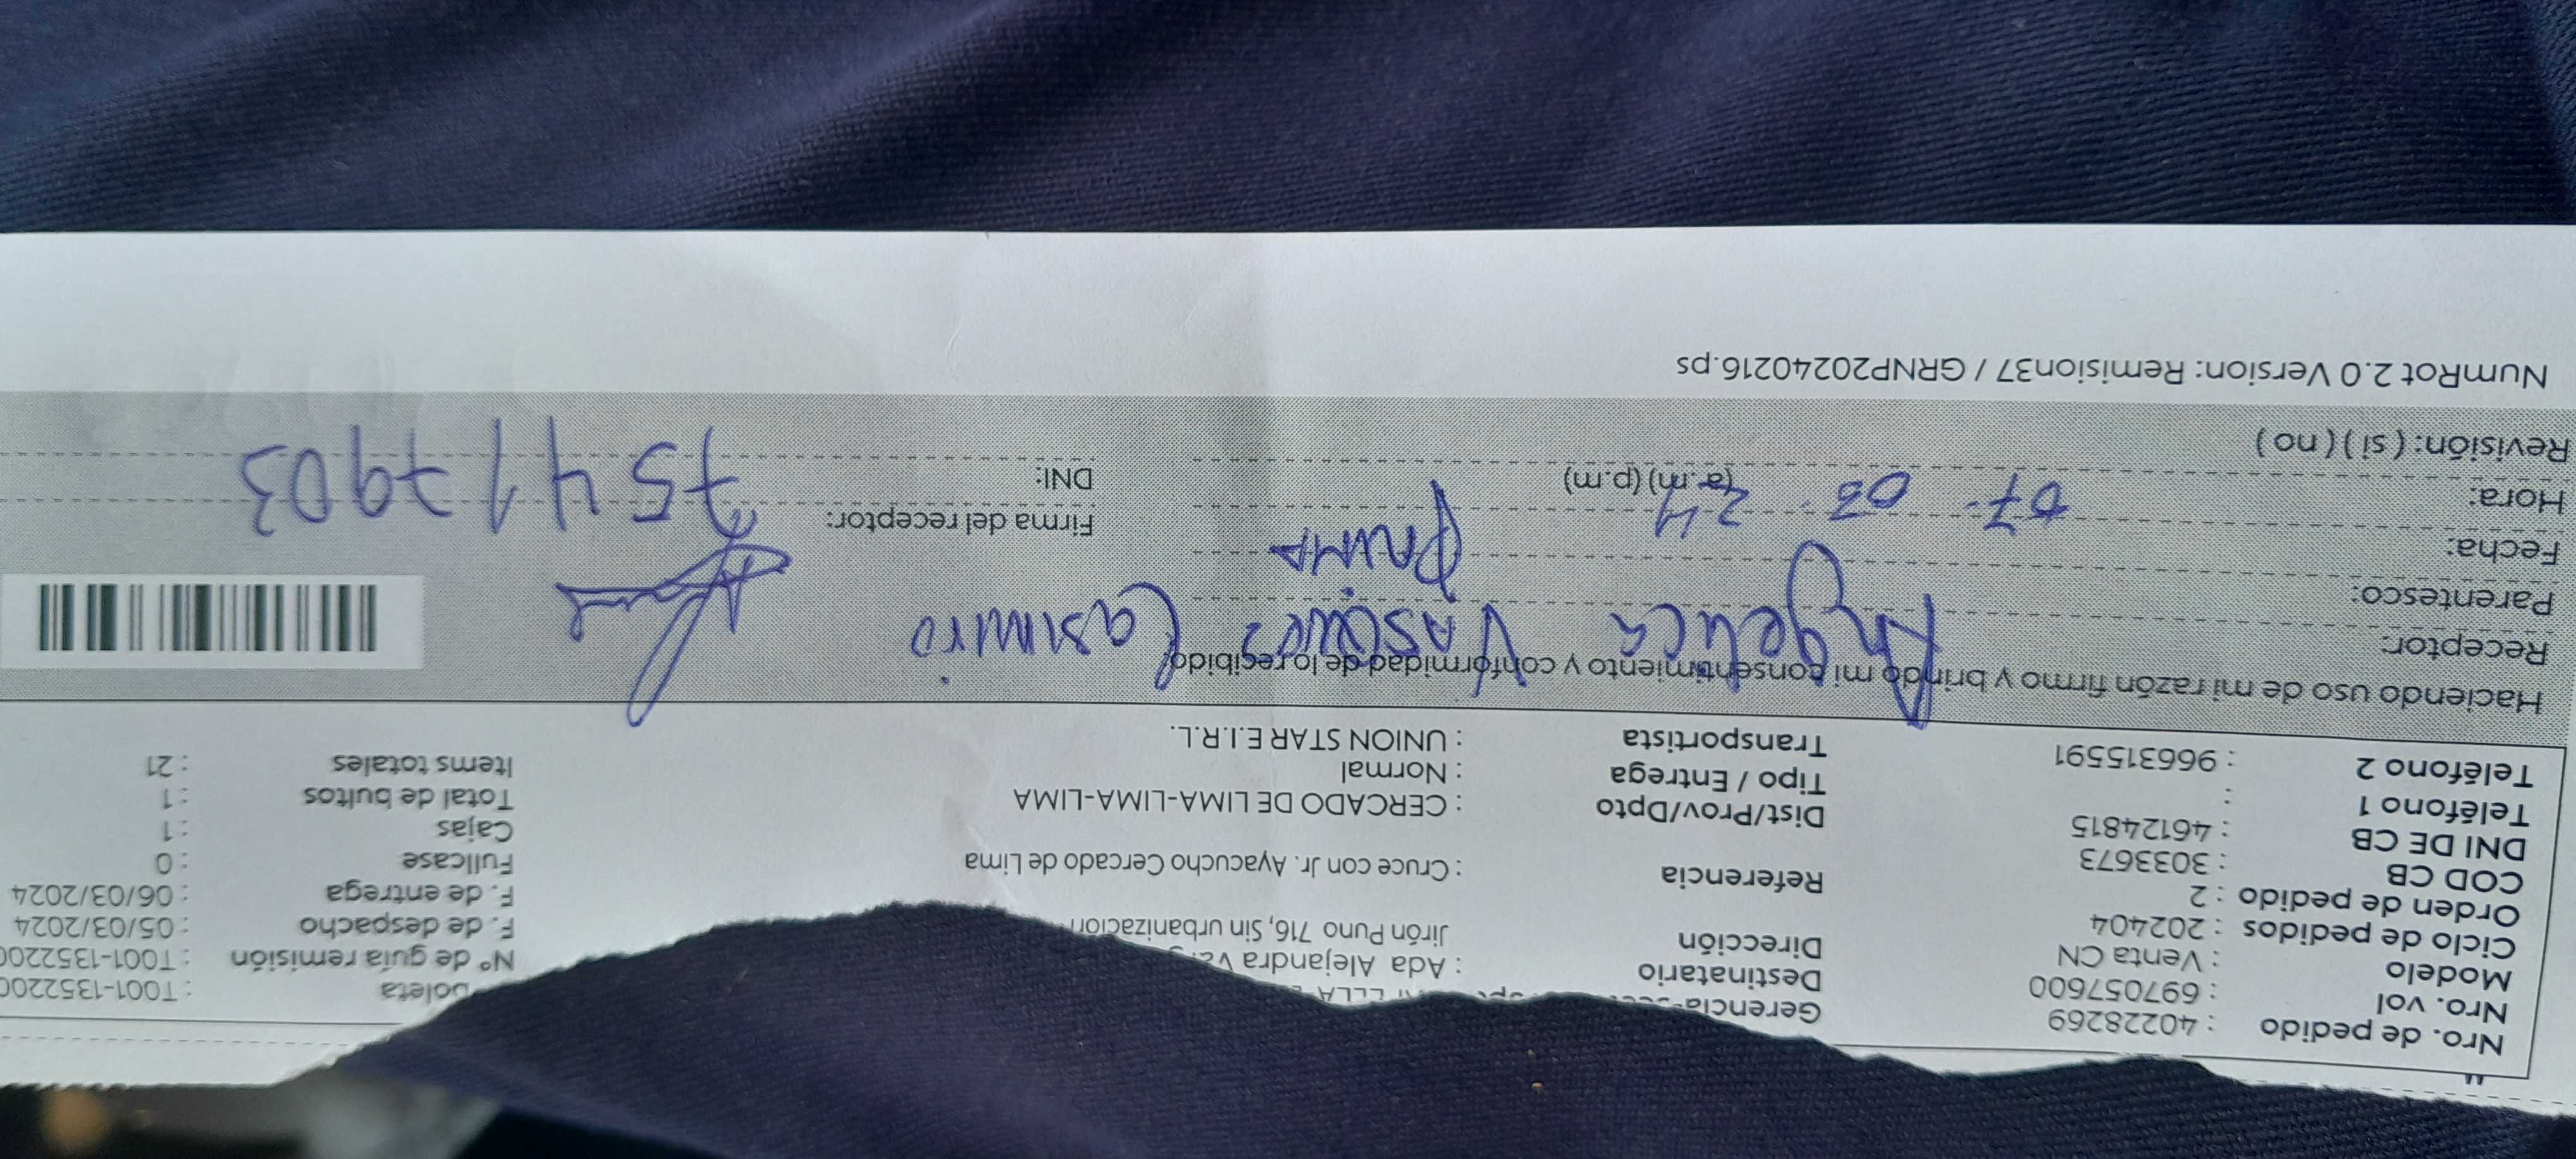 Nro. de pedido : 40228269
Nro. vol : 697057600
Modelo : Venta CN
Ciclo de pedidos : 202404
Orden de pedido : 2
COD CB : 3033673
DNI DE CB : 46124815
Teléfono 1 :
Teléfono 2 : 966315591
Gerencia
Destinatario : Ada Alejandra
Dirección Jirón Puno 716, Sin urbanizacion
Referencia : Cruce con Jr. Ayacucho Cercado de Lima
Dist/Prov/Dpto : CERCADO DE LIMA-LIMA-LIMA
Tipo / Entrega : Normal
Transportista : UNION STAR E.I.R.L.
boleta : T001-1352200
N° de guía remisión : T001-1352200
F. de despacho : 05/03/2024
F. de entrega : 06/03/2024
Fullcase : 0
Cajas : 1
Total de bultos : 1
Items totales : 21
Haciendo uso de mi razón firmo y brindo mi consentimiento y conformidad de lo recibido
Receptor: Angelica Vasquez Casimiro
Parentesco: Prima
Fecha: 07. 03. 24
Hora: (a.m) (p.m)
Revisión: ( si ) ( no )
Firma del receptor:
DNI: 75417903
NumRot 2.0 Version: Remision37 / GRNP20240216.ps